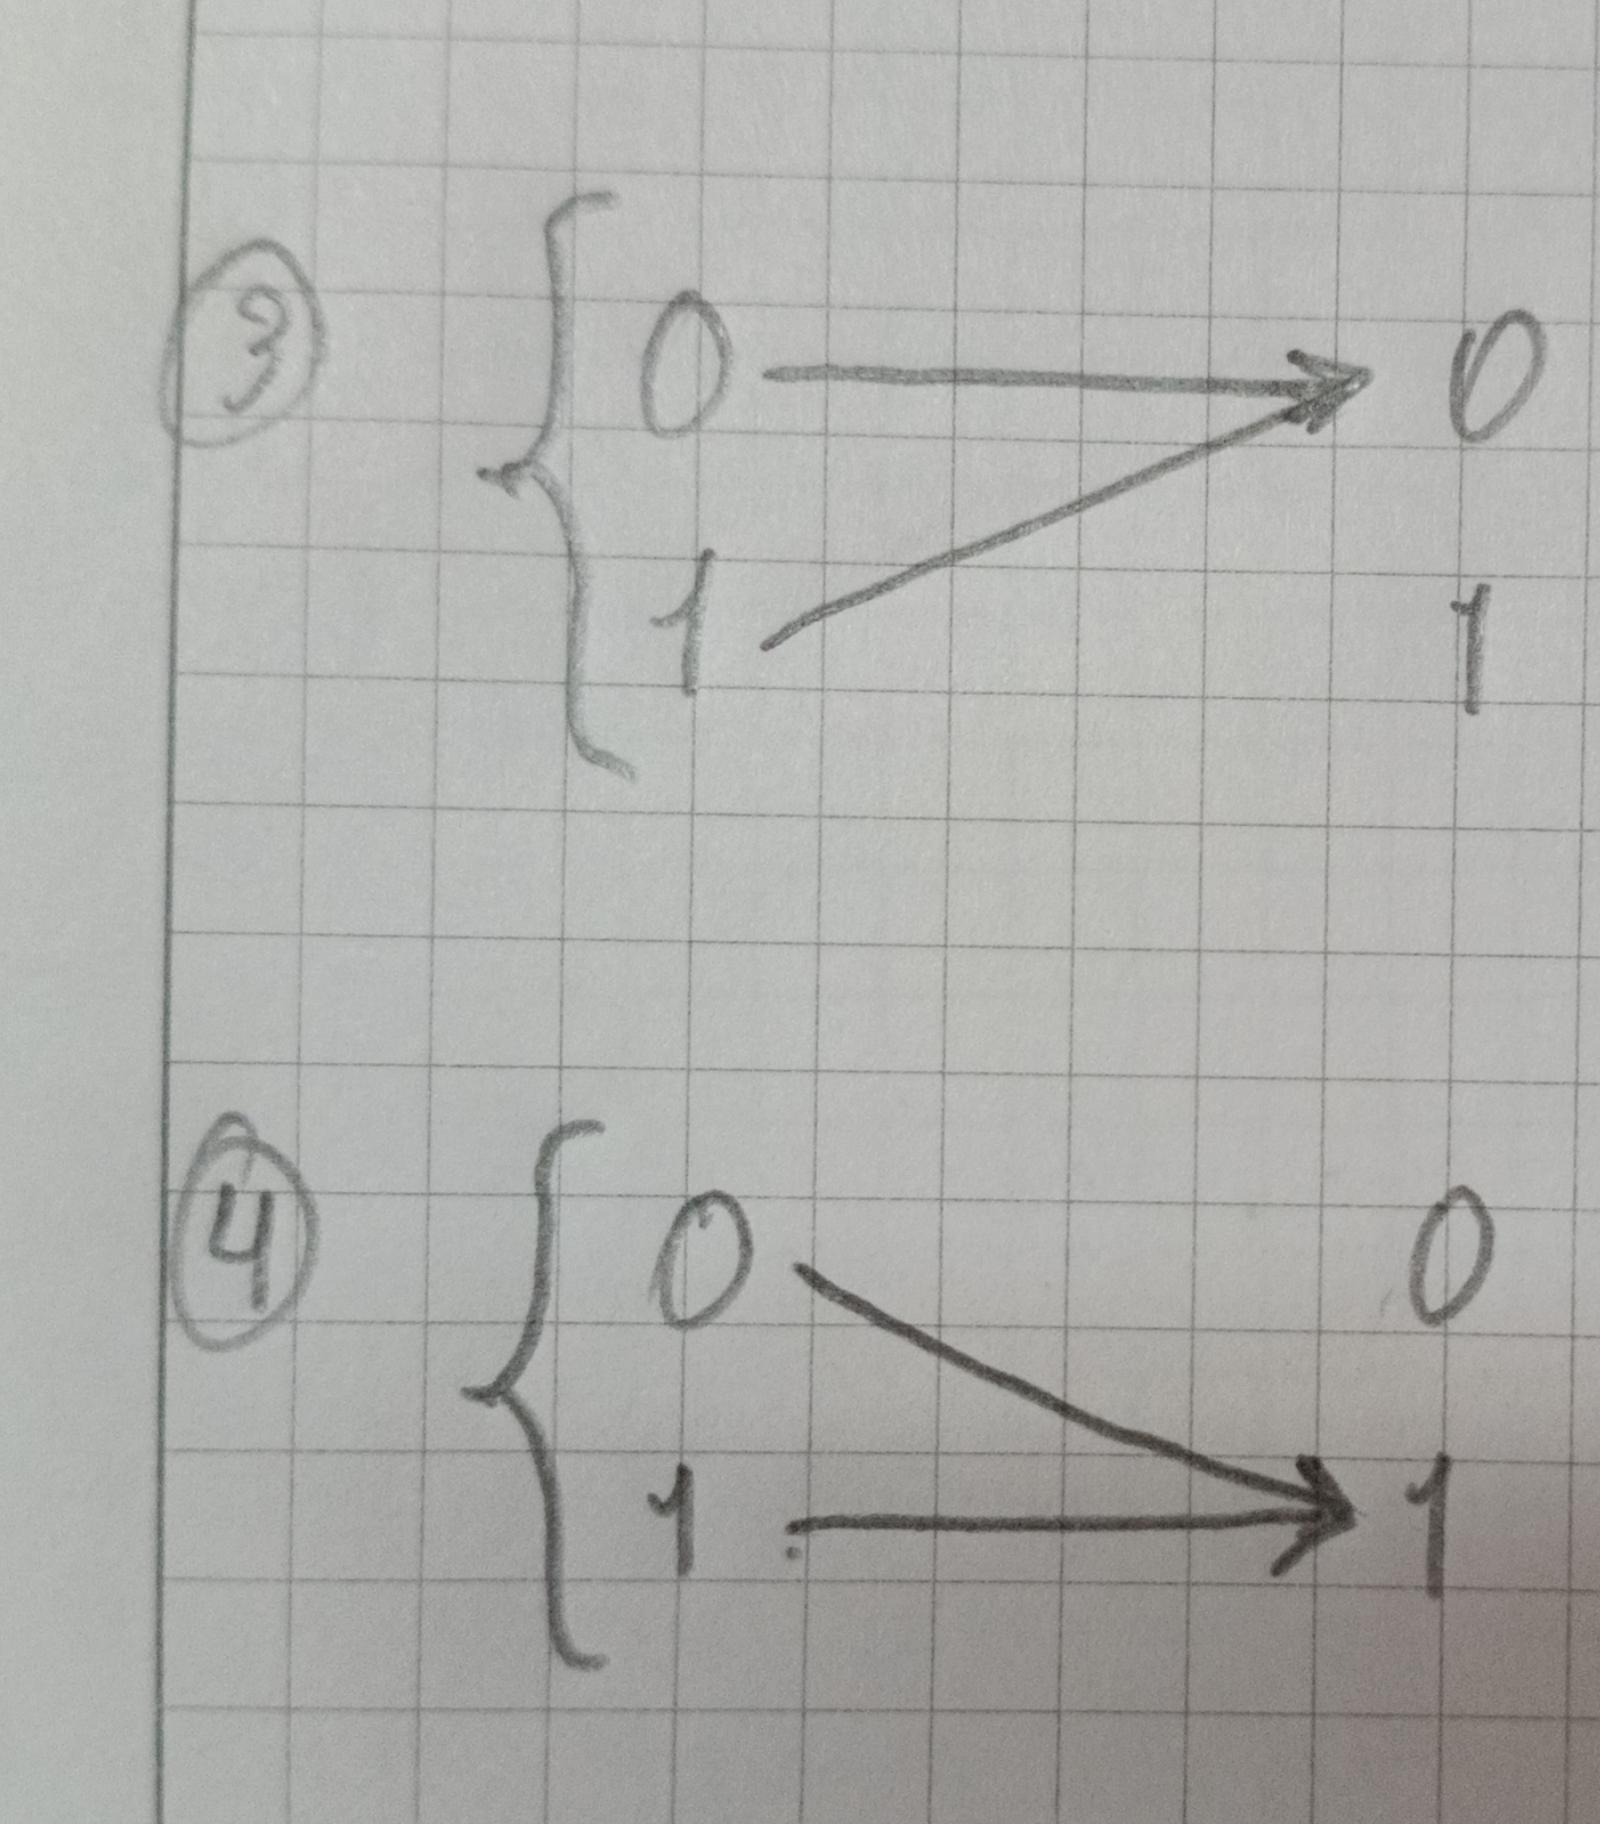 ③ { 0 → 0
1 1
④ { 0 0
1 → 1